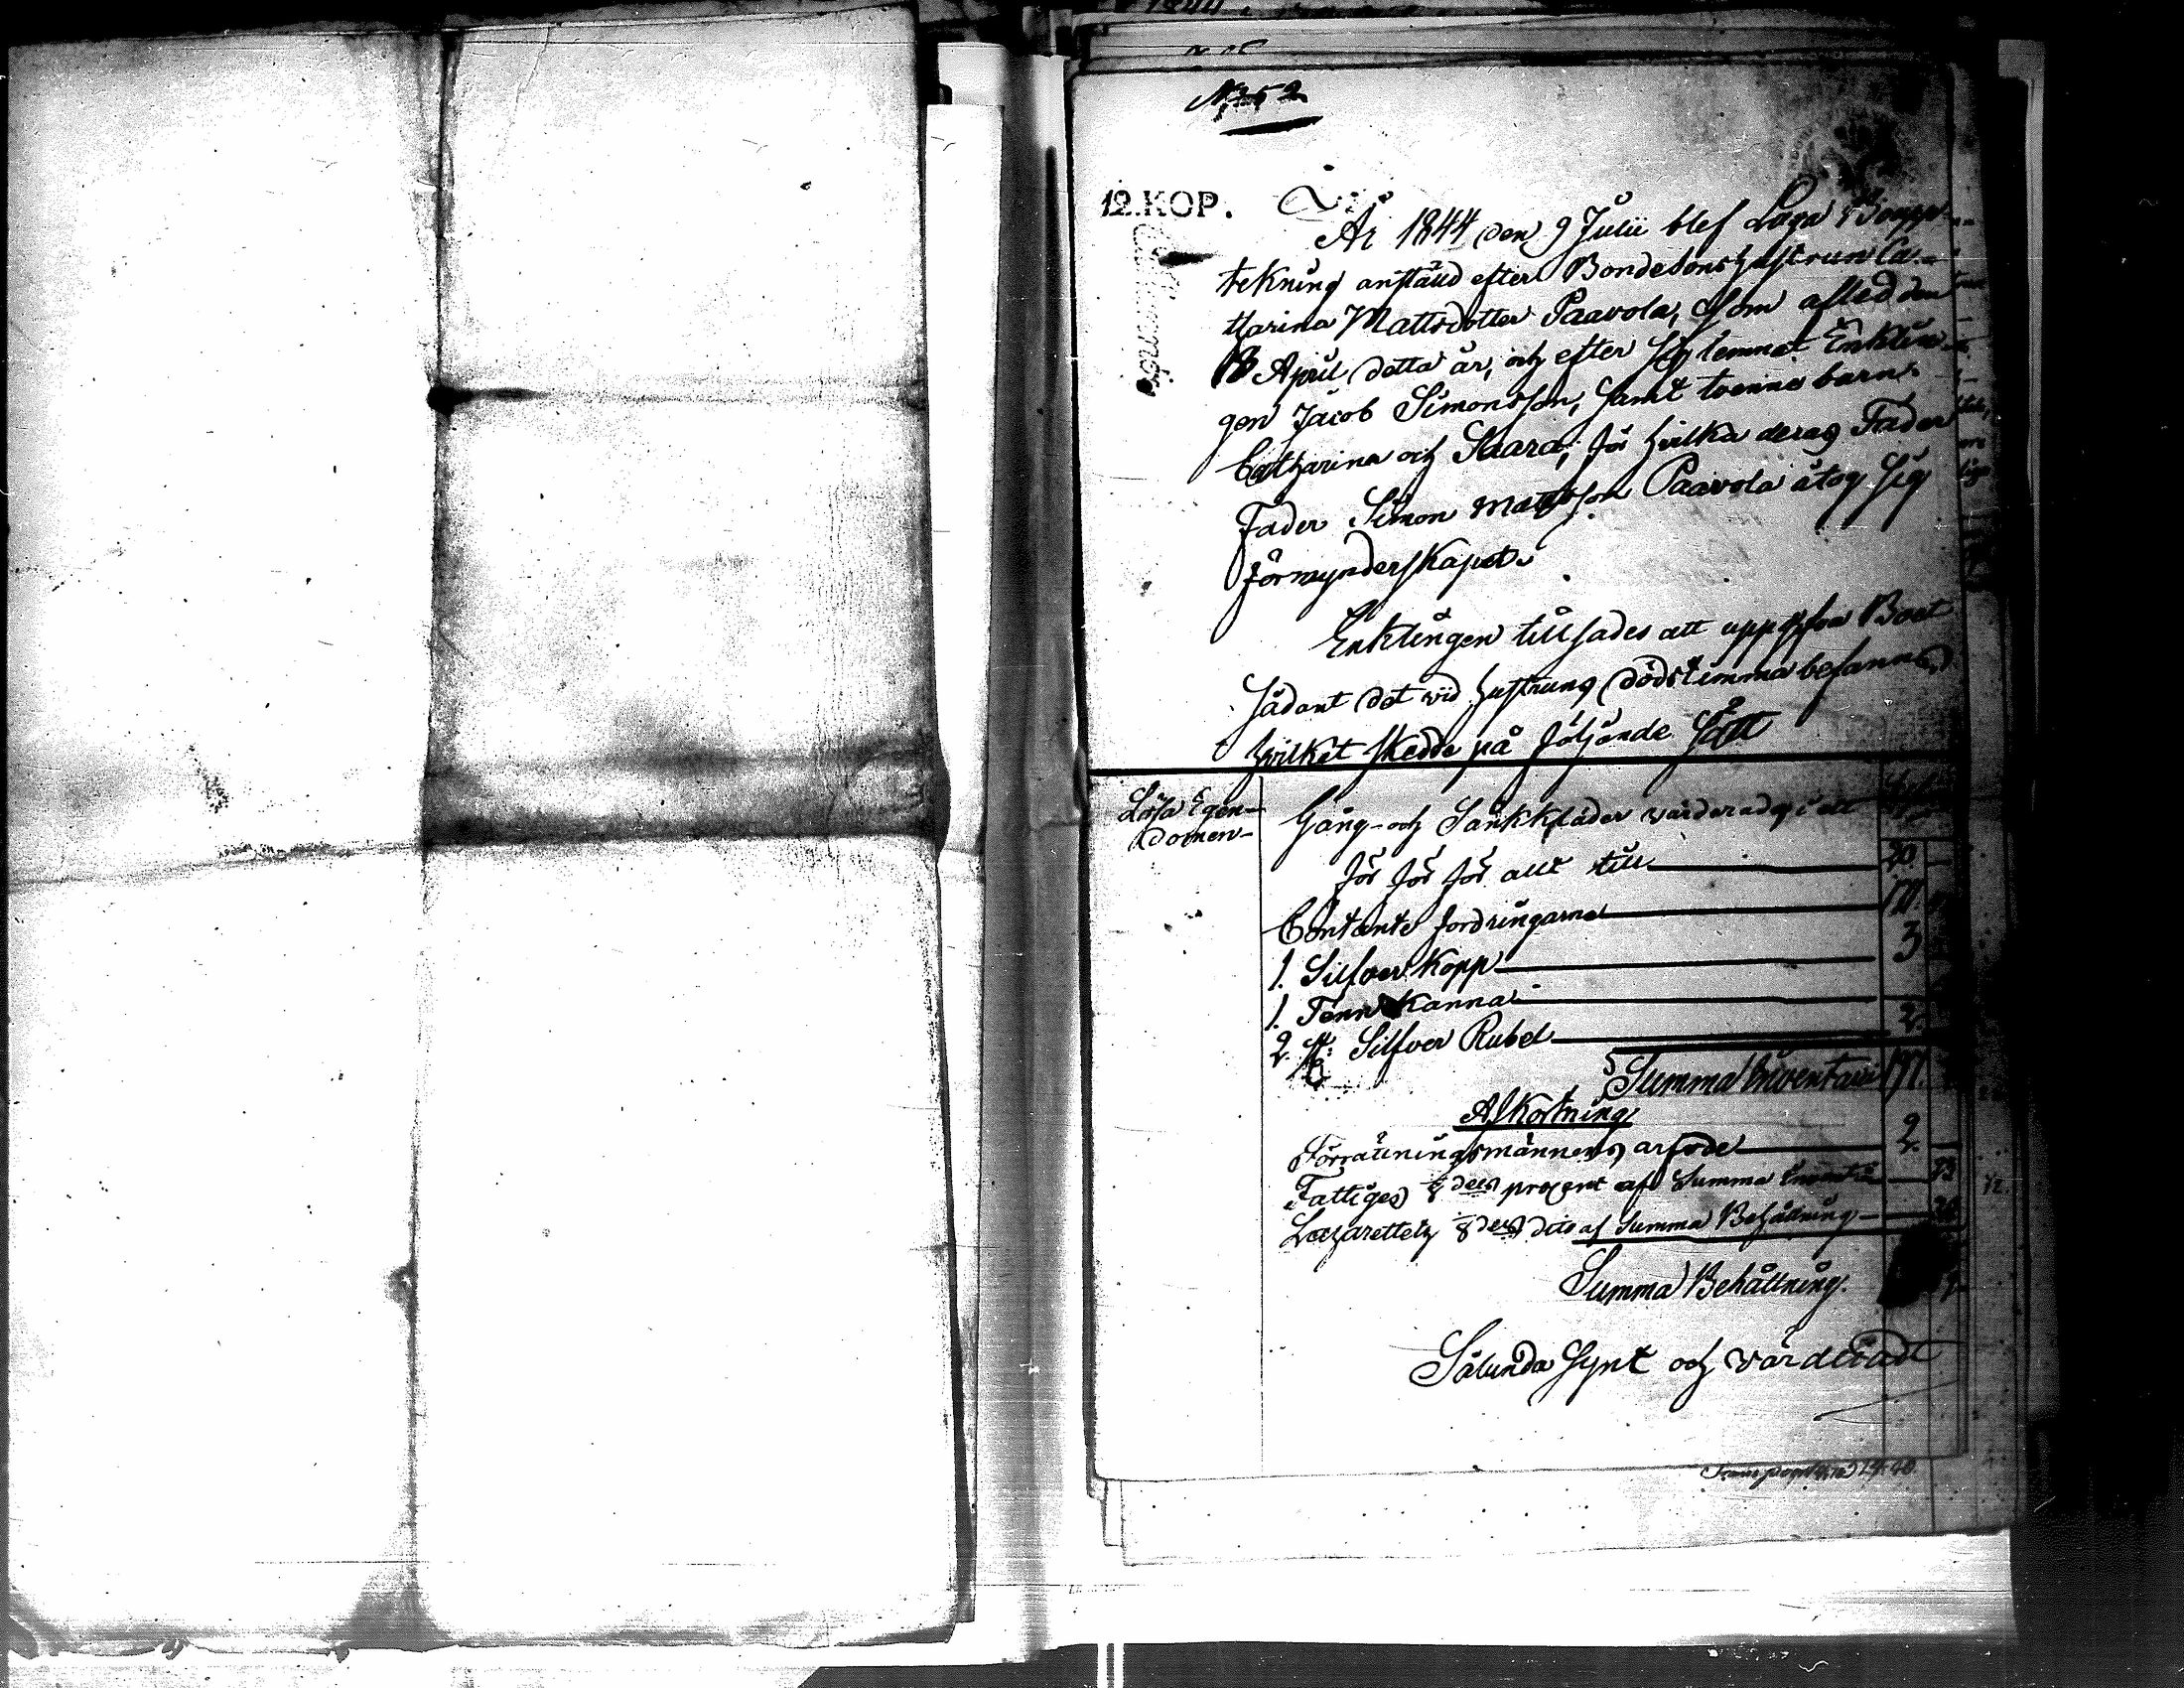 12.KOP.
År 1844 den 9 Julii blef Laga Boupp-
tekning anstäld efter Bondesons hustrun Ca-
tharina Mattsdotter Paavola, som afled den
18 April detta år, och efter sig lemnat Enklin-
gen Jacob Simonsson, samt tvenne barn
Catharina och Saara; för hvilka deras Fader
Fader Simon Mattsson Paavola åtog sig
förmynderskapet.
Enklingen tillsades att uppgifva Boet
sådant det vid hustruns dödstimma befanns,
hvilket skedde på följande sätt
Lösa Egen-
domen
Gång- och Sänkkläder värderades i ett
för för för allt till 20
Contante fordringarna 170
1. Silfver Kopp 3
1. Tenn Kanna
2. st: Silfver Rubel 2
Summa Inventarii 197.
Afkortning
Förrättningsmännens arfvode 2
Fattiges 1/8 dels procent af Summa Inventarii
Lazarettets 1/8 dels dito af Summa Behållning
Summa Behållning.
Sålunda Synt och värderadt